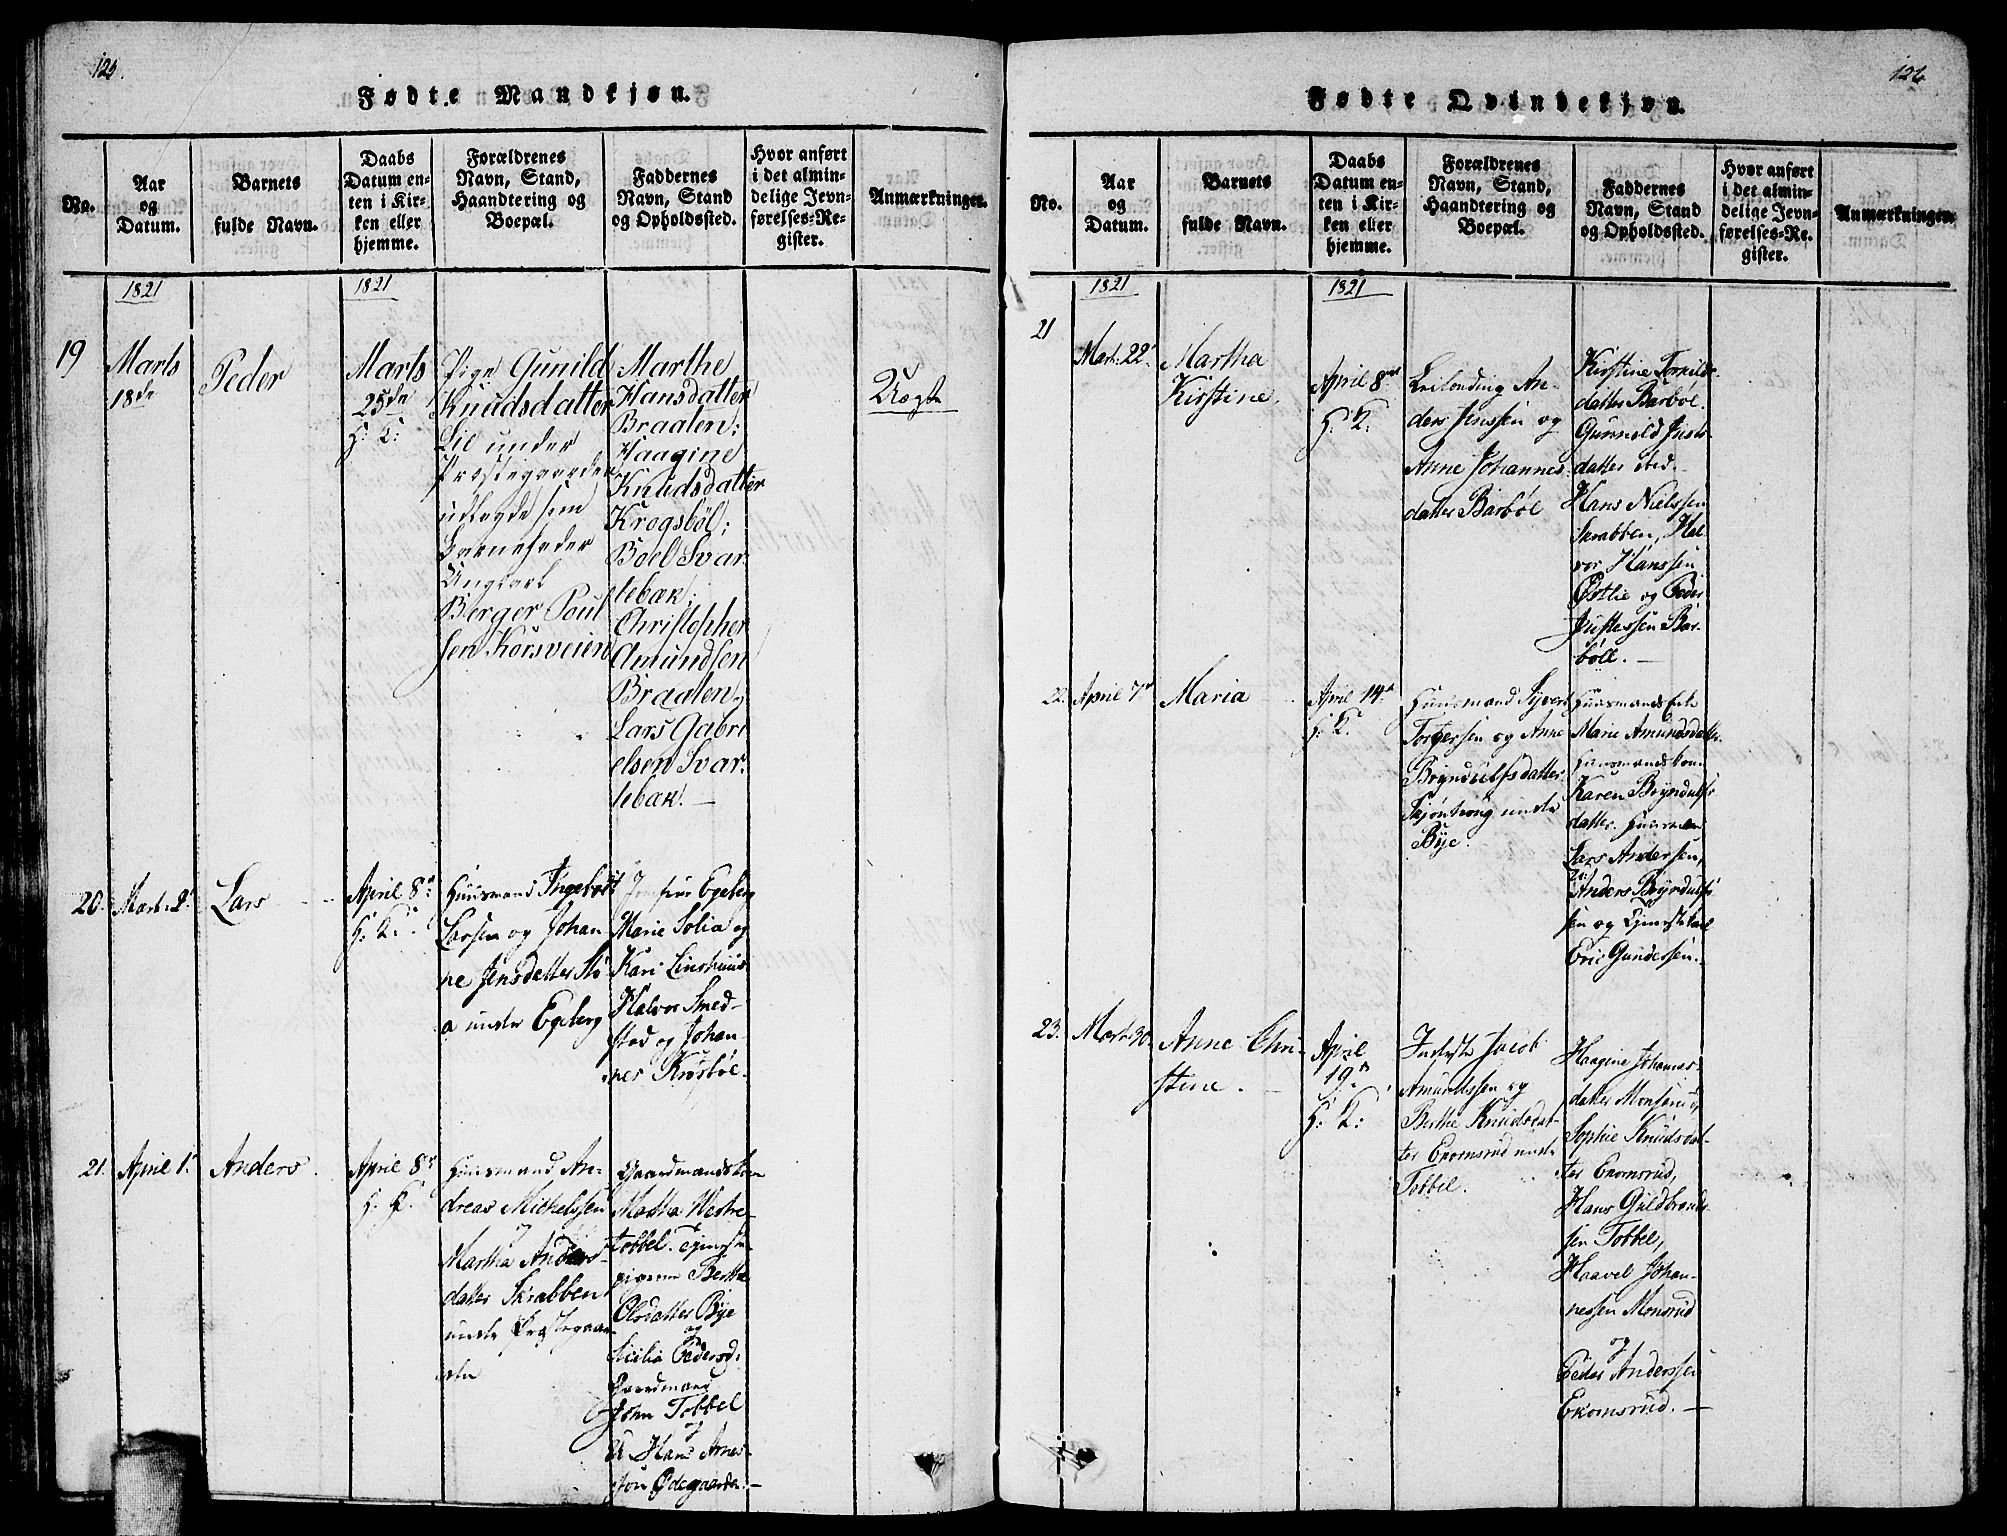 125.
Fødte Mandkjøn.
No.
Aar
og
Datum.
Barnets
fulde Navn.
Daabs
Datum en-
ten i Kir-
ken eller
hjemme.
Forældrenes
Navn, Stand,
Haandtering og
Boepæl.
Faddernes
Navn, Stand
og Opholdssted.
Hvor anført
i det almin-
delige Jevn-
førelses-Re-
gister.
Anmærkninger.
1821
1821
19
Marts
18de
Peder
Marts
25de
H: K:
Pige Gunild
Knudsdatter
Lie under
Præstegaarden
udlagde som
Barnefader
Ungkarl
Berger Poul
sen Korsveien
Marthe
Hansdatter
Braaten;
Haagine
Knudsdatter
Krogsböl;
Boel Svar-
tebæk;
Christopher
Amundsen
Braaten,
Lars Gabri
elsen Svar-
tebæk! —
Uægte
20.
Mart: 2
Lars
April 8de
H: K:
Huusmand Ingebört
Larsen og Johan
ne Jensdatter Stö
a under Egeberg
Jomfrue Egeberg
Marie Solia og
Kari Linshuus
Halvor Smed-
stad og Johan-
nes Krosböe.
21.
April 1.
Anders.
April 8de
H: K.
Huusmand An-
dreas Michelssen
og
Martha Anders-
datter Skrabben
under Præstegaar-
den
Gaardmandskone
Martha Westre-
Tobbel. Tjeneste-
pigerne Berthe
Olsdatter Bÿe
og
Cicilia Pedersd:
Gaardmand
John Tobbel
og
U Hans Arnes-
søn Ødegaarden. —
126
Fødte Qvindekjøn.
No.
Aar
og
Datum.
Barnets
fulde Navn.
Daabs
Datum en-
ten i Kir-
ken eller
hjemme.
Forældrenes
Navn, Stand,
Haandtering og
Boepæl.
Faddernes
Navn, Stand
og Opholdssted.
Hvor anført
i det almin-
delige Jevn-
førelses-Re-
gister.
Anmærkninger.
1821
1821
21
Mart: 22
Martha
Kirstine.
April 8de
H: K:
Leilending An-
ders Jenssen og
Anne Johannes
datter Barböl
Kirstine Torkilds-
datter Barböl.
Gunnild Justs-
datter ibid. —
Hans Nielssen
Skrabben, Hal-
vor Hanssen
Østlie og Peder
Justessen Bar-
böll. —
22.
April 7de
Maria
April 14de
H: K.
Huusmand Syvert
Torgersen og Anne
Bryndulfsdatter
Skjöntvong under
Bÿe.
Huusmands Enke
Marie Amundsdatter.
Huusmandskone
Karen Bryndulfs
datter. Huusmæn
Lars Andersen,
Anders Bryndulfs
sen og Tjenestekarl
Eric Gundersen.
23.
Mart: 30.
Anne Chri-
stine.
April
19de
H: K:
Inderste Jacob
Amundssen og
Berthe Knudsdat-
ter Ekornsrud under
Tobbel.
Haagine Johannes-
datter Monserud,
Sophie Knudsdat-
ter Ekornsrud,
Hans Guldbrands-
sen Tobbel,
Haavel Johan-
nessen Monsrud
og
Peder Anderssen
Ekornsrud. —